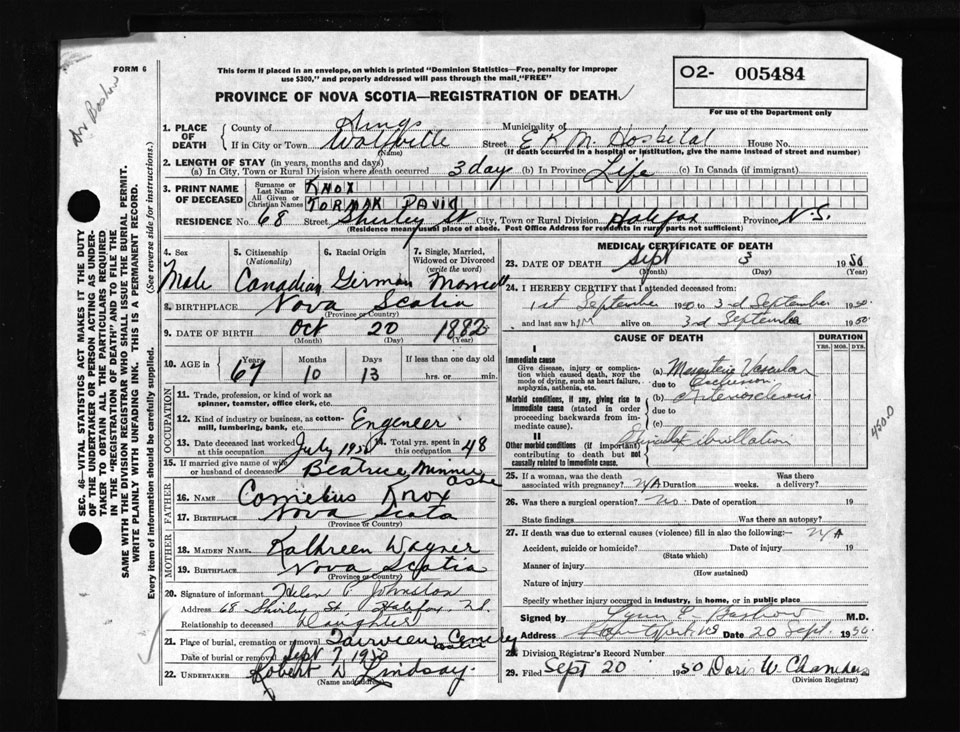 FORM 6
This form if placed in an envelope, on which is printed "Dominion Statistics—Free, penalty for improper
use $300," and properly addressed will pass through the mail, "FREE"
PROVINCE OF NOVA SCOTIA—REGISTRATION OF DEATH
O2- 005484
For use of the Department only
Dr Bashow
SEC. 46—VITAL STATISTICS ACT MAKES IT THE DUTY
OF THE UNDERTAKER OR PERSON ACTING AS UNDER-
TAKER TO OBTAIN ALL THE PARTICULARS REQUIRED
IN THE "REGISTRATION OF DEATH" AND TO FILE THE
SAME WITH THE DIVISION REGISTRAR WHO SHALL ISSUE THE BURIAL PERMIT.
WRITE PLAINLY WITH UNFADING INK. THIS IS A PERMANENT RECORD.
Every item of information should be carefully supplied. (See reverse side for instructions.)
1. PLACE OF DEATH
County of Kings Municipality of
If in City or Town Wolfville (Name) Street E K M Hospital House No.
(If death occurred in a hospital or institution, give the name instead of street and number)
2. LENGTH OF STAY (in years, months and days)
(a) In City, Town or Rural Division where death occurred 3 day (b) In Province Life (c) In Canada (if immigrant)
3. PRINT NAME OF DECEASED
Surname or Last Name KNOX
All Given or Christian Names TORMAK DAVID
RESIDENCE No. 68 Street Shirley St City, Town or Rural Division Halifax Province N.S.
(Residence means usual place of abode. Post Office Address for residents in rural parts not sufficient)
4. Sex Male
5. Citizenship (Nationality) Canadian
6. Racial Origin German
7. Single, Married, Widowed or Divorced (write the word) Married
8. BIRTHPLACE Nova Scotia
(Province or Country)
9. DATE OF BIRTH Oct 20 1882
(Month) (Day) (Year)
10. AGE in Years 67 Months 10 Days 13 If less than one day old
hrs. or min.
OCCUPATION
11. Trade, profession, or kind of work as
spinner, teamster, office clerk, etc.
12. Kind of industry or business, as cotton-
mill, lumbering, bank, etc. Engeneer
13. Date deceased last worked
at this occupation July 1950 14. Total yrs. spent in this occupation 48
15. If married give name of wife
or husband of deceased Beatrice Minnie
Ashe
FATHER
16. NAME Cornelius Knox
17. BIRTHPLACE Nova Scota
(Province or Country)
MOTHER
18. MAIDEN NAME Kathreen Wagner
19. BIRTHPLACE Nova Scotia
(Province or Country)
20. Signature of informant Helen P. Johnston
Address 68 Shirley St Halifax N.S.
Relationship to deceased Daughter
21. Place of burial, cremation or removal Fairview Cemetery
Date of burial or removal Sept 7 1950
22. UNDERTAKER Robert D Lindsay.
(Name and Address)
MEDICAL CERTIFICATE OF DEATH
23. DATE OF DEATH Sept 3 1950
(Month) (Day) (Year)
24. I HEREBY CERTIFY that I attended deceased from:
1st September 1950 to 3rd September 1950
and last saw him alive on 3rd September 1950
CAUSE OF DEATH
DURATION
YRS. MOS. DYS.
I
Immediate cause
Give disease, injury or complica-
tion which caused death, NOT the
mode of dying, such as heart failure,
asphyxia, asthenia, etc.
(a) Mesenteric Vascular
due to Occlusion
Morbid conditions, if any, giving rise to
immediate cause (stated in order
proceeding backwards from im-
mediate cause).
(b) Arteriosclerosis
due to
(c)
II
Other morbid conditions (if important)
contributing to death but not
causally related to immediate cause.
Fibrillation
4500
25. If a woman, was the death
associated with pregnancy? N/A Duration weeks. Was there a delivery?
26. Was there a surgical operation? no. Date of operation 19
State findings Was there an autopsy?
27. If death was due to external causes (violence) fill in also the following:— N/A
Accident, suicide or homicide? Date of injury 19
(State which)
Manner of injury
(How sustained)
Nature of injury
Specify whether injury occurred in industry, in home, or in public place
Signed by Bashow M.D.
Address NS Date 20 Sept. 1950.
28. Division Registrar's Record Number
29. Filed Sept 20 1950 Doris W. Chambers
(Division Registrar)